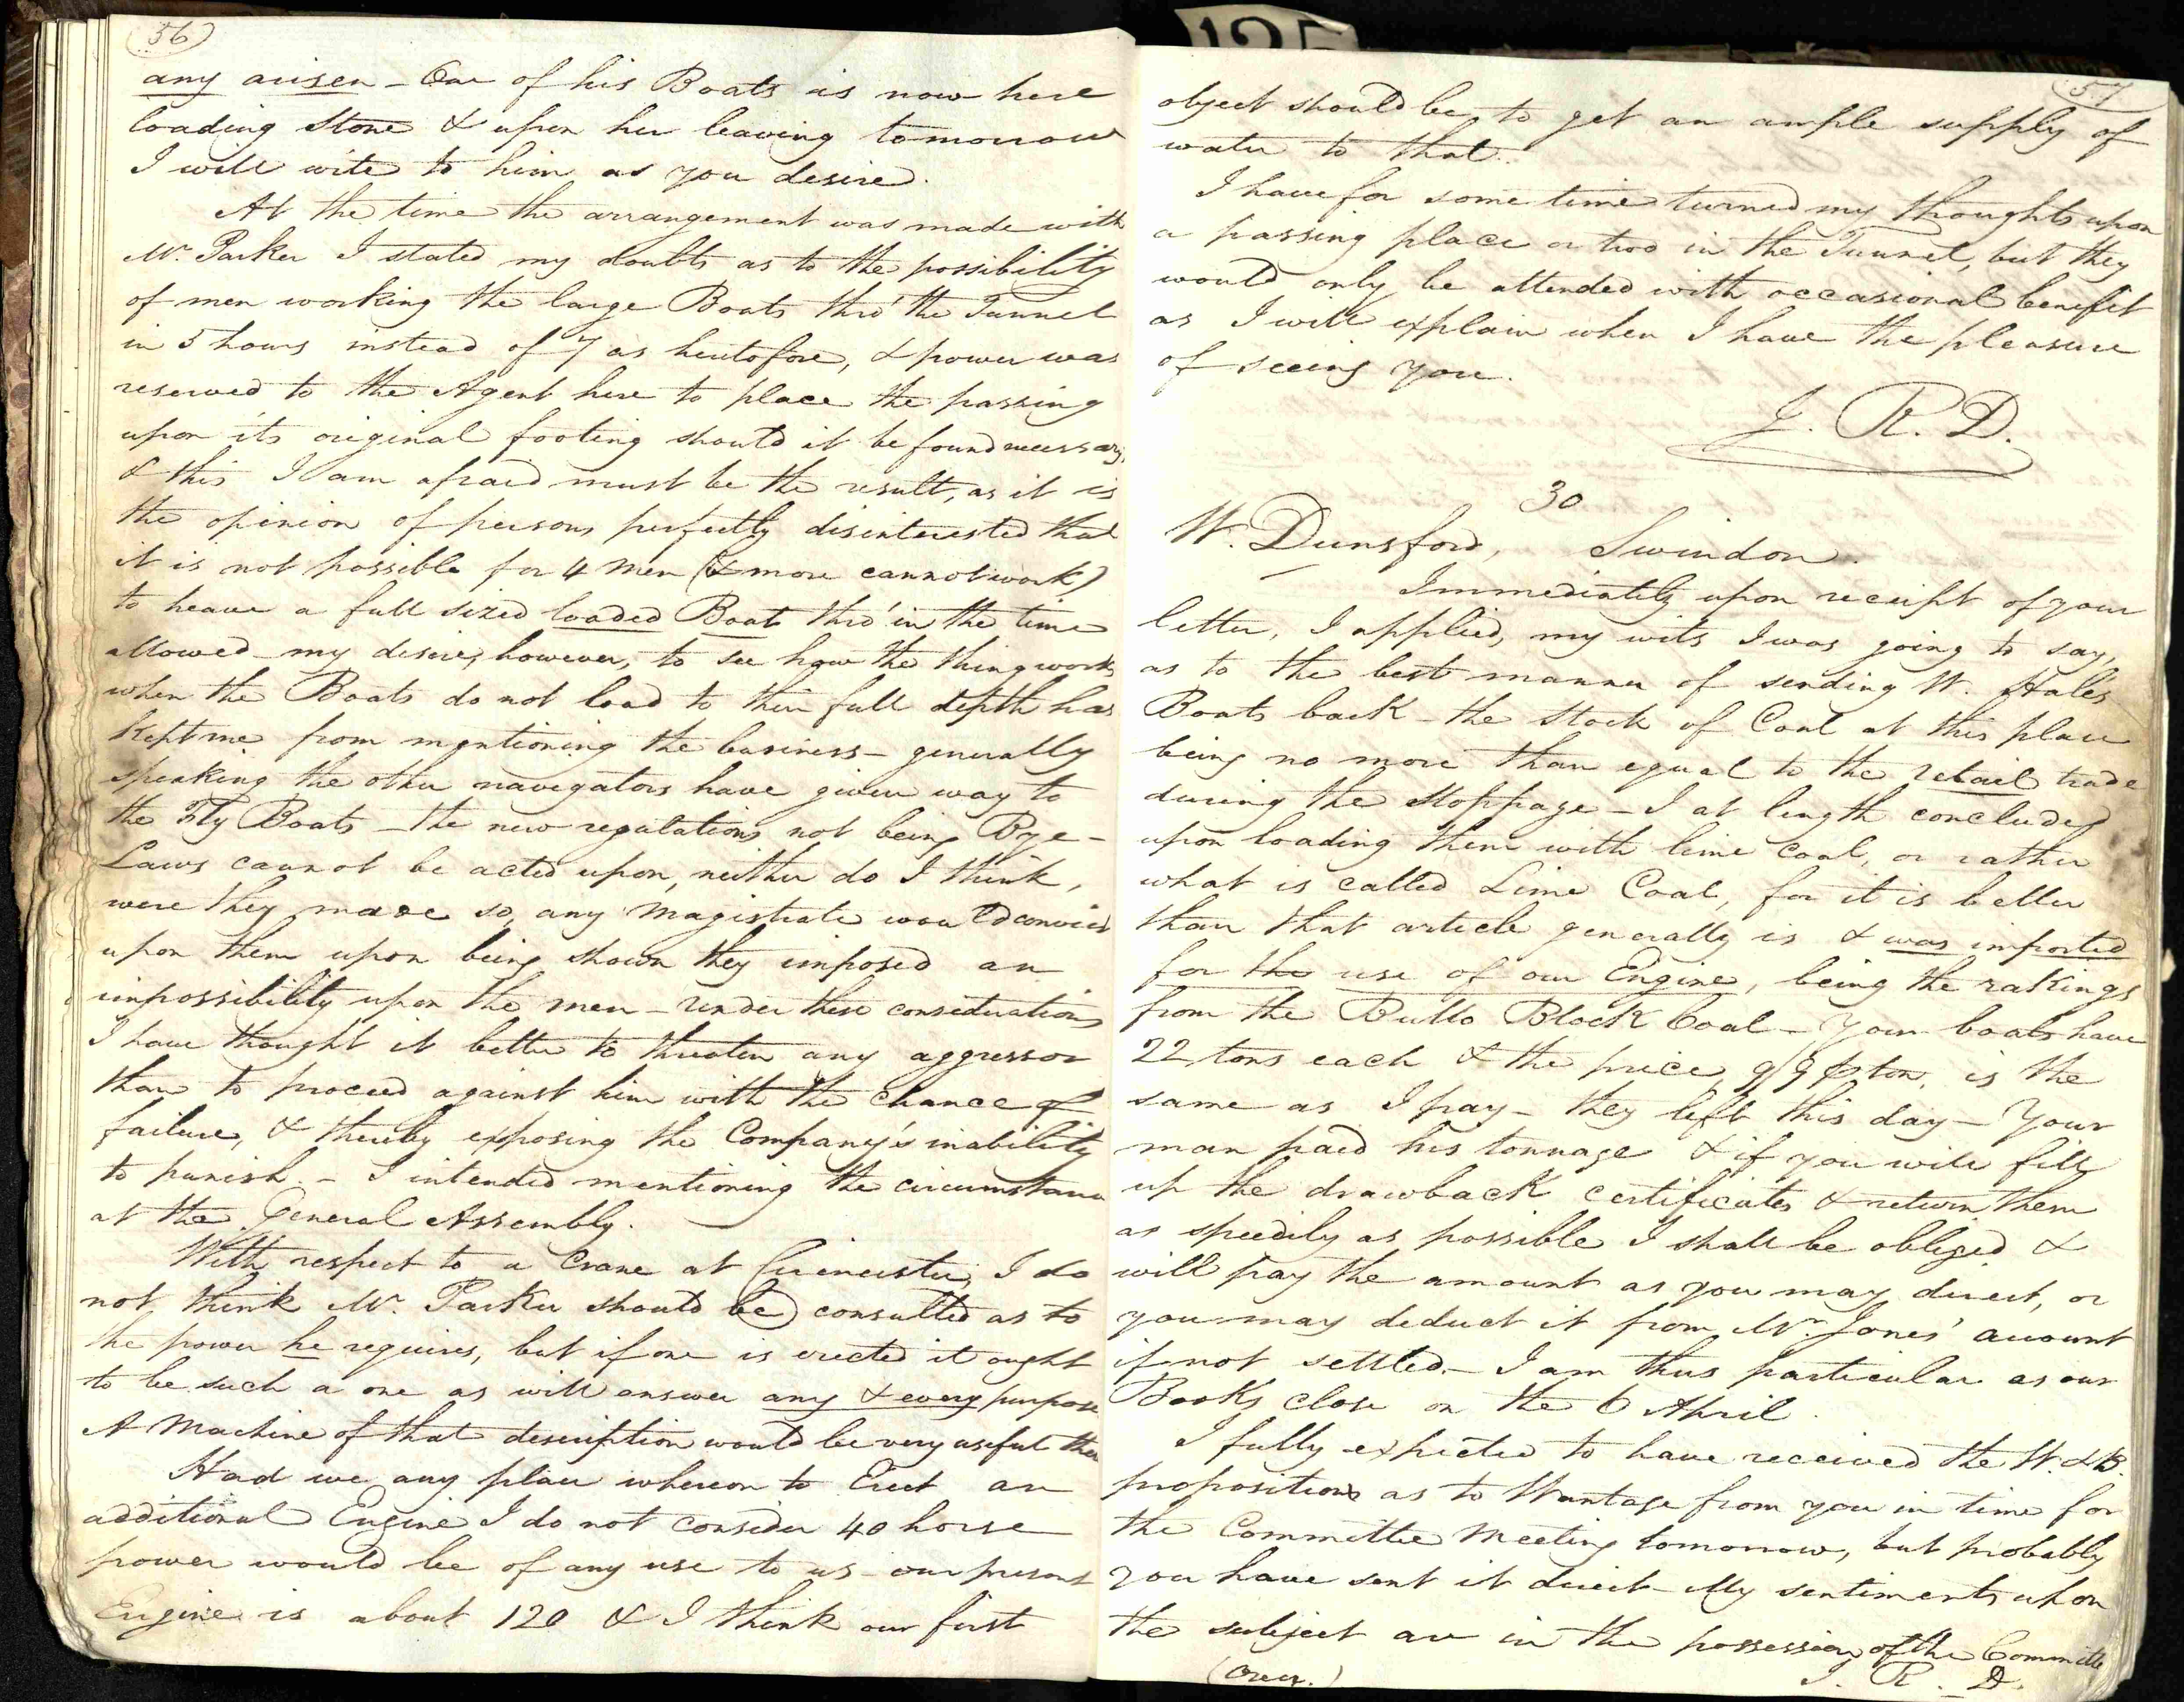 56
any arisen - One of his Boats is now here
loading Stone & upon her leaving tomorrow
I will write to him as you desire.
At the time the arrangement was made with
Mr. Parker I stated my doubts as to the possibility
of men working the large Boats thro' the Tunnel
in 5 hours instead of 7 as heretofore, & power was
reserved to the Agent here to place the passing
upon it's original footing should it be found necessary,
& this I am afraid must be the result, as it is
the opinion of persons perfectly disinterested that
it is not possible for 4 Men (& more cannot work)
to heave a full sized loaded Boat thro' in the time
allowed - my desire, however, to see how the thing works
when the Boats do not load to their full depth has
kept me from mentioning the business - generally
speaking the other navigators have given way to
the Fly Boats - the new regulations not being Bye-
Laws cannot be acted upon, neither do I think,
were they made so, any Magistrate would convict
upon them upon being shown they imposed an
impossibility upon the men - under these considerations
I have thought it better to threaten any aggressor
than to proceed against him with the chance of
failure, & thereby exposing the Company's inability
to punish. - I intended mentioning the circumstance
at the General Assembly.
With respect to a Crane at Cirencester, I do
not think Mr. Parker should be consulted as to
the power he requires, but if one is erected it ought
to be such a one as will answer any & every purpose
A Machine of that description would be very useful there
Had we any place whereon to Erect an
additional Engine I do not consider 40 horse
power would be of any use to us - our present
Engine is about 120 & I think our first
57
object should be, to get an ample supply of
water to that.
I have for some time turned my thoughts upon
a passing place or two in the Tunnel, but they
would only be attended with occasional benefit
as I will explain when I have the pleasure
of seeing you.
J. R. D.
30
W. Dunsford, Swindon.
Immediately upon receipt of your
letter, I applied, my wits I was going to say,
as to the best manner of sending W. Hale's
Boats back - the Stock of Coal at this place
being no more than equal to the retail trade
during the stoppage - I at length concluded
upon loading them with lime Coal, or rather
what is called Lime Coal, for it is better
than that article generally is & was imported
for the use of our Engine, being the rakings
from the Bullo Block Coal - Your boats have
22 tons each & the price 9/9 p ton, is the
same as I pay - they left this day - Your
man paid his tonnage & if you will fill
up the drawback certificates & return them
as speedily as possible I shall be obliged &
will pay the amount as you may direct, or
you may deduct it from Mr. Jones' account
if not settled. - I am thus particular as our
Books close on the 6 April.
I fully expected to have received the W. & B.
propositions as to Wantage from you in time for
the Committee Meeting tomorrow, but probably
you have sent it direct - My sentiments upon
the subject are in the possession of the Committee
(Over.) J. R. D.
125